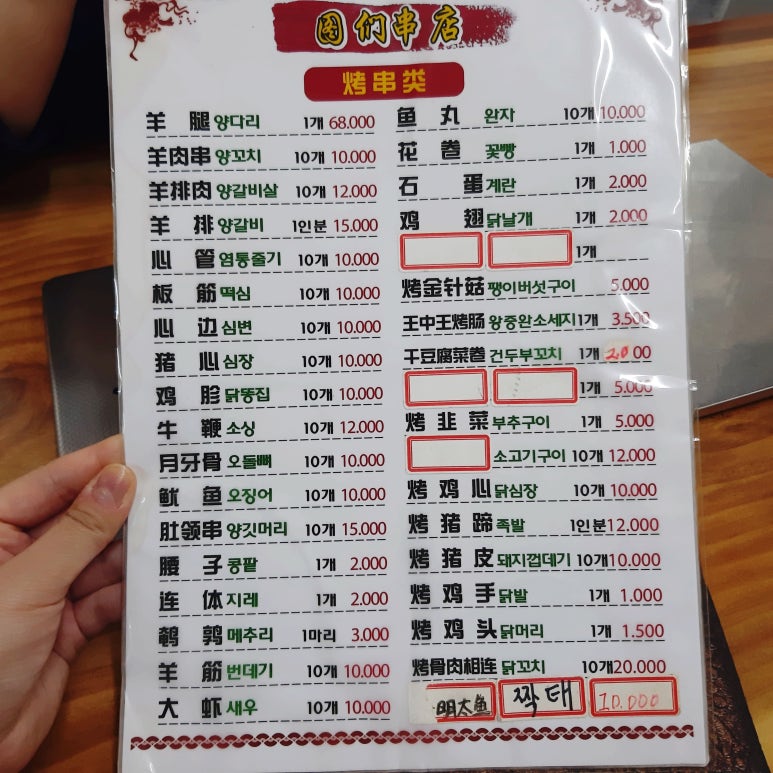 图们串店
烤串类
羊腿 양다리 1개 68.000
羊肉串 양꼬치 10개 10.000
羊排肉 양갈비살 10개 12.000
羊排 양갈비 1인분 15.000
心管 염통줄기 10개 10.000
板筋 떡심 10개 10.000
心边 심변 10개 10.000
猪心 심장 10개 10.000
鸡胗 닭똥집 10개 10.000
牛鞭 소싱 10개 12.000
月牙骨 오돌뼈 10개 10.000
鱿鱼 오징어 10개 10.000
肚领串 양깃머리 10개 15.000
腰子 콩팥 1개 2.000
连体 지레 1개 2.000
鹌鹑 메추리 1마리 3.000
羊筋 번데기 10개 10.000
大虾 새우 10개 10.000
鱼丸 완자 10개 10.000
花卷 꽃빵 1개 1.000
石蛋 계란 1개 2.000
鸡翅 닭날개 1개 2.000
1개
烤金针菇 팽이버섯구이 5.000
王中王烤肠 왕중완소세지 1개 3.500
干豆腐菜卷 건두부꼬치 1개 2000
1개 5.000
烤韭菜 부추구이 1개 5.000
소고기구이 10개 12.000
烤鸡心 닭심장 10개 10.000
烤猪蹄 족발 1인분 12.000
烤猪皮 돼지껍데기 10개 10.000
烤鸡手 닭발 1개 1.000
烤鸡头 닭머리 1개 1.500
烤骨肉相连 닭꼬치 10개 20.000
明太鱼 짝태 10.000